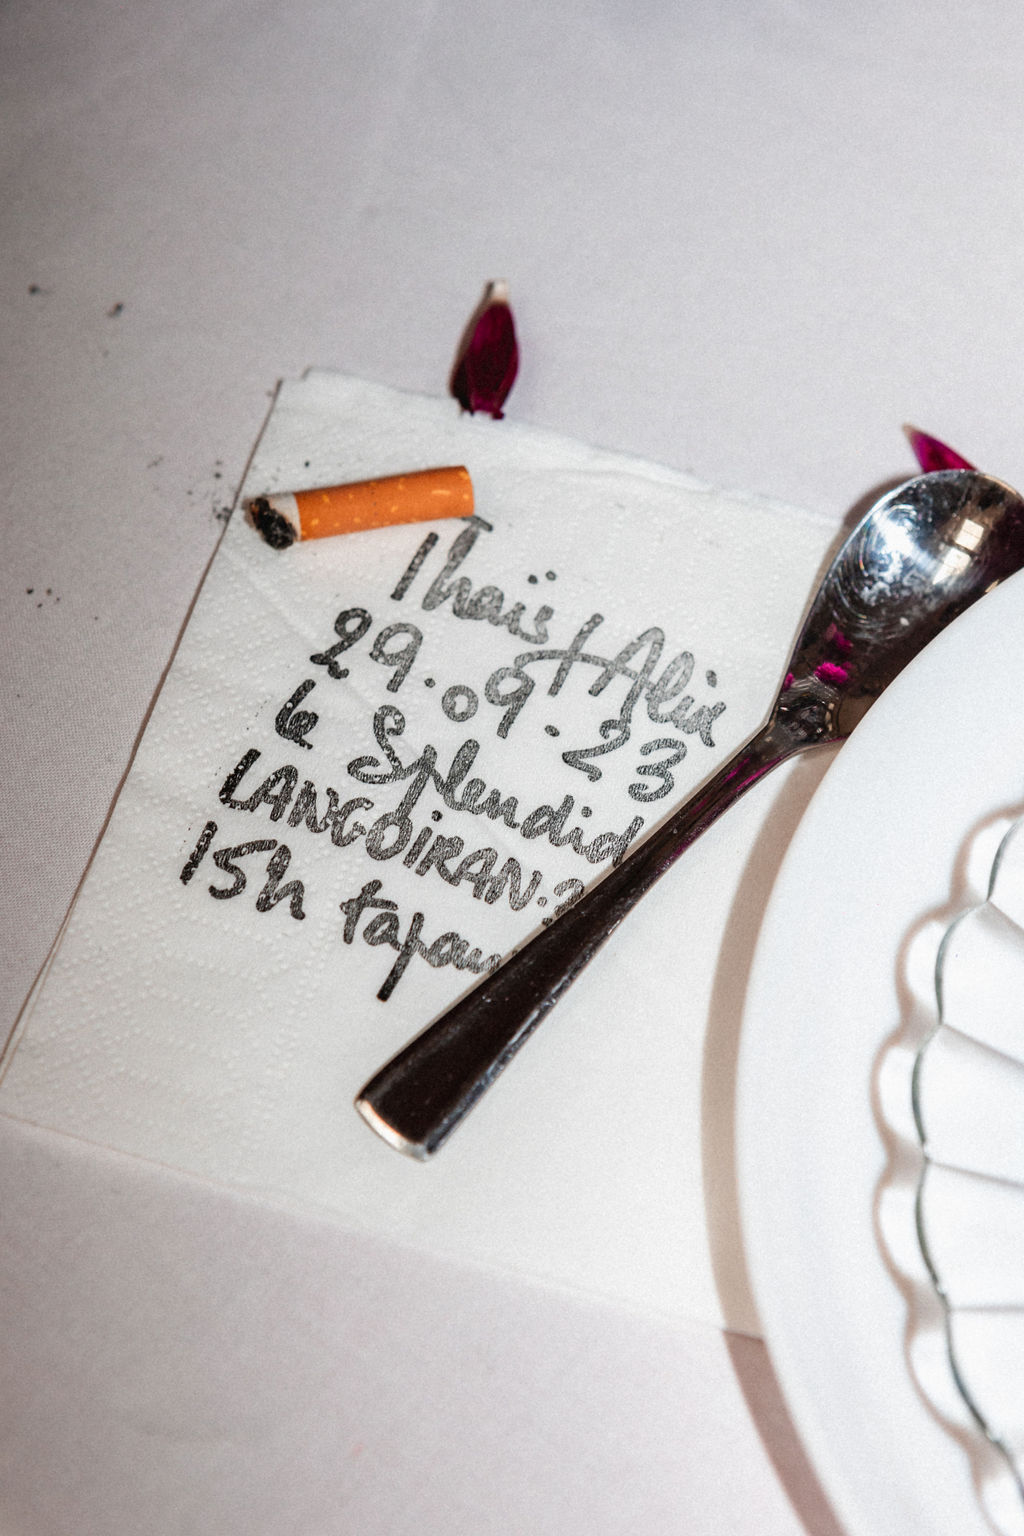 Thaïs + Alix
29.09.23
Le Splendid
LANGOIRAN.
15h